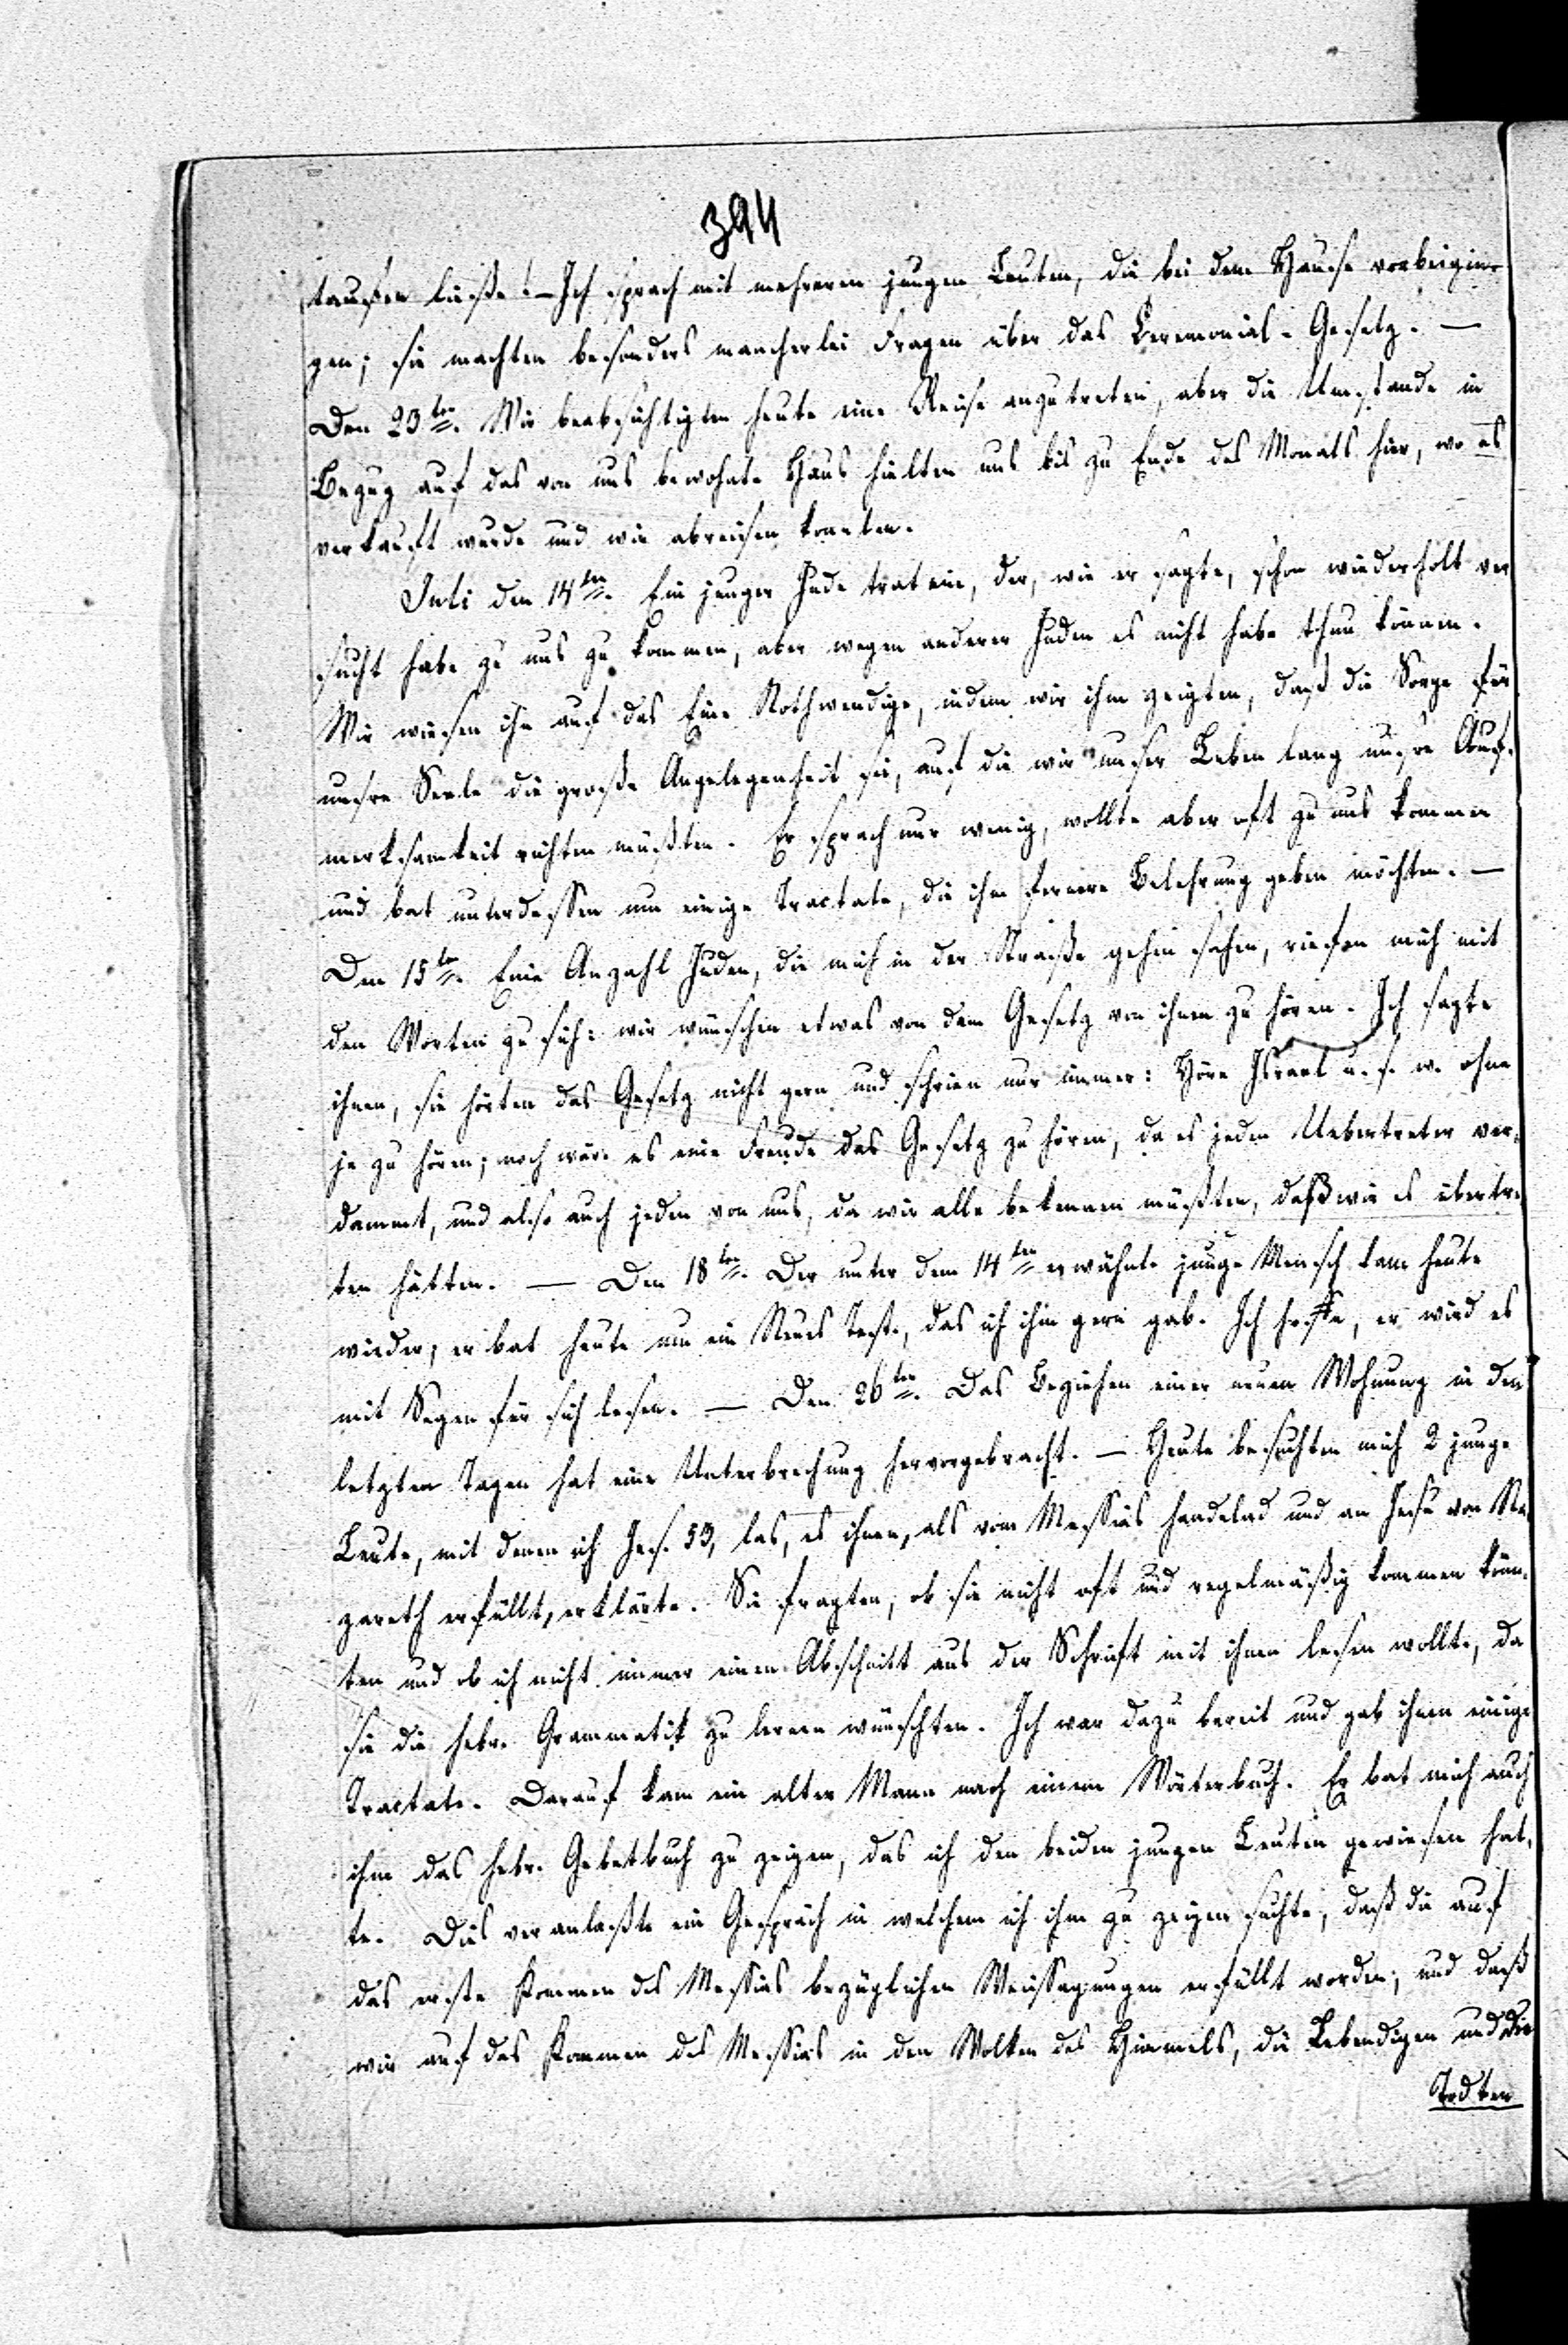 394
taufen ließe! – Ich sprach mit mehreren jungen Leuten, die bei dem Hause vorbeigin-
gen; sie machten besonders mancherlei Fragen über das Ceremonial-Gesetz. —
Den 23ten. Wir beabsichtigten heute eine Reise anzutreten, aber die Umstände in
Bezug auf das von uns bewohnte Haus hielten uns bis zu Ende des Monats hier, wo es
verkauft wurde und wir abreisen konnten.
Juli den 14ten. Ein junger Jude trat ein, der, wie er sagte, schon wiederholt ver
sucht habe zu uns zu kommen, aber wegen anderer Juden es nicht habe thun können.
Wir wiesen ihn auf das Eine Nothwendige, indem wir ihm zeigten, daß die Sorge für
unsre Seele die große Angelegenheit sei, auf die wir unser Leben lang unsre Auf-
merksamkeit richten müßten. Er sprach nur wenig, wollte aber oft zu uns kommen
und bat unterdessen um einige Tractate, die ihm fernere Belehrung geben möchten. —
Den 15ten. Eine Anzahl Juden, die mich in der Straße gehen sahen, riefen mich mit
den Worten zu sich: wir wünschen etwas von dem Gesetz von ihnen zu hören. Ich sagte
ihnen, sie hörten das Gesetz nicht gern und schrien nur immer: Höre Israel u. s. w. ohne
je zu hören; noch wäre es eine Freude das Gesetz zu hören, da es jeden Uebertreter ver-
dammt, und also auch jeden von uns, da wir alle bekennen müßten, daß wir es übertre-
ten hätten. — Den 18ten. Der unter dem 14ten erwähnte junge Mensch kam heute
wieder; er bat heute um ein Neues Test., das ich ihm gern gab. Ich hoffe, er wird es
mit Segen für sich lesen. — Den 26ten. Das Beziehen einer neuen Wohnung in den
letzten Tagen hat eine Unterbrechung hervorgebracht. — Heute besuchten mich 2 junge
Leute, mit denen ich Jes. 53, las, es ihnen, als vom Messias handelnd und an Jesu von Na-
zareth erfüllt, erklärte. Sie fragten, ob sie nicht oft und regelmäßig kommen könn-
ten und ob ich nicht immer einen Abschnitt aus der Schrift mit ihnen lesen wollte, da
sie die hebr. Grammatik zu lernen wünschten. Ich war dazu bereit und gab ihnen einige
Tractate. Darauf kam ein alter Mann nach einem Wörterbuch. Er bat mich auch
ihm das hebr. Gebetbuch zu zeigen, das ich den beiden jungen Leuten gewiesen hat-
te. Dies veranlaßte ein Gespräch in welchem ich ihm zu zeigen suchte, daß die auf
das erste Kommen des Messias bezüglichen Weissagungen erfüllt worden; und daß
wir auf das Kommen des Messias in den Wolken des Himmels, die Lebendigen und die
Todten